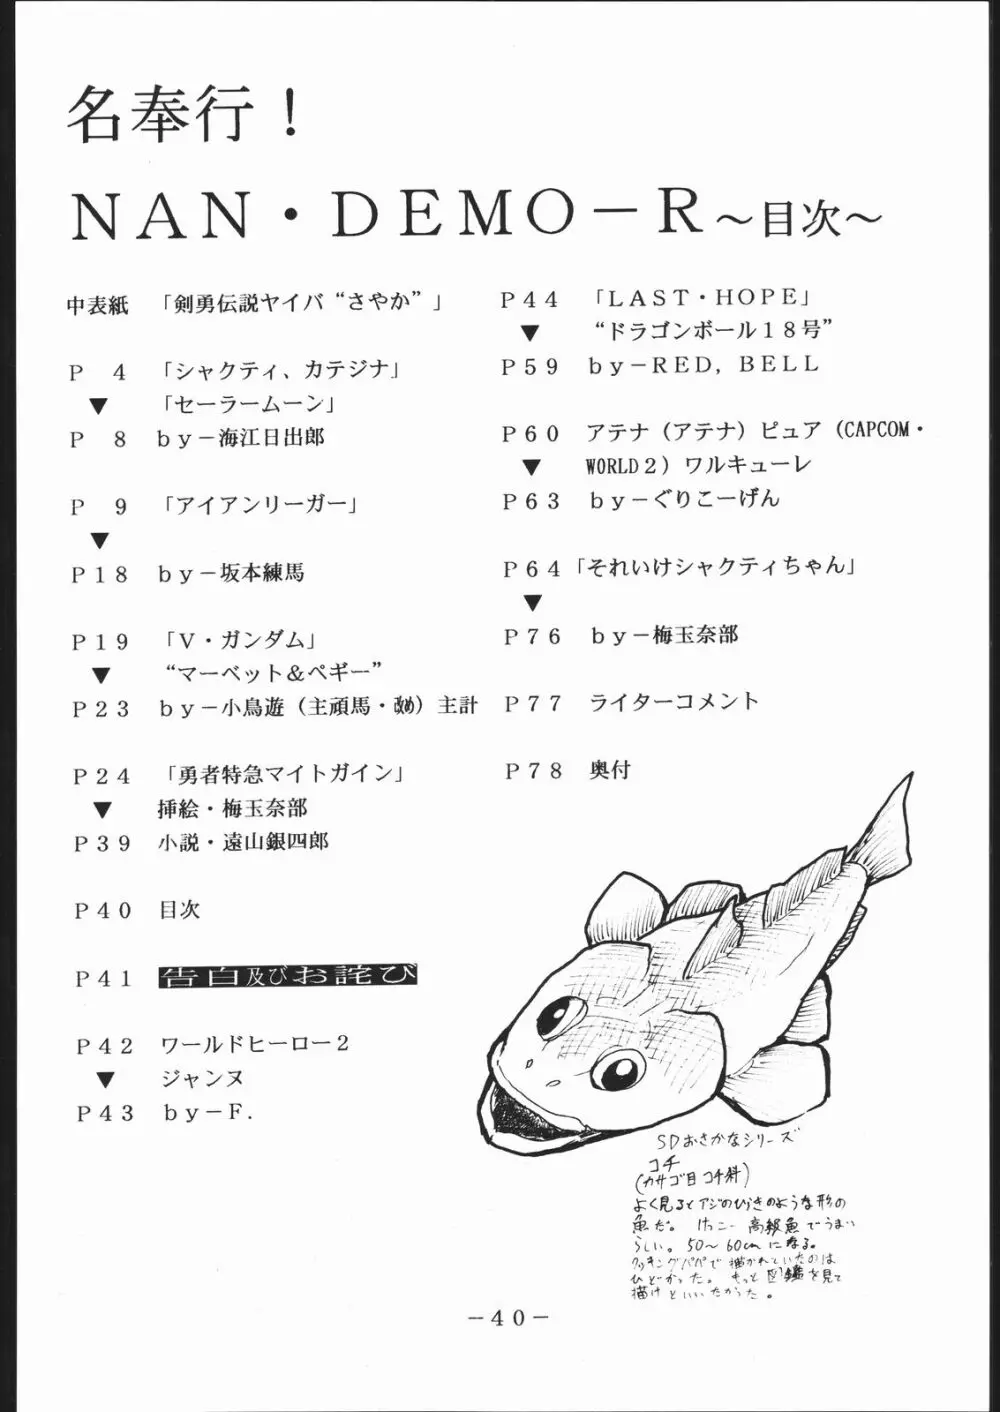 名奉行！
ＮＡＮ・ＤＥＭＯ－Ｒ～目次～
中表紙　「剣勇伝説ヤイバ“さやか”」
Ｐ　４　「シャクティ、カテジナ」
▼　「セーラームーン」
Ｐ　８　ｂｙ－海江日出郎
Ｐ　９　「アイアンリーガー」
▼
Ｐ１８　ｂｙ－坂本練馬
Ｐ１９　「Ｖ・ガンダム」
▼　“マーベット＆ペギー”
Ｐ２３　ｂｙ－小鳥遊（主頑馬・改め）主計
Ｐ２４　「勇者特急マイトガイン」
▼　挿絵・梅玉奈部
Ｐ３９　小説・遠山銀四郎
Ｐ４０　目次
Ｐ４１　告白及びお詫び
Ｐ４２　ワールドヒーロー２
▼　ジャンヌ
Ｐ４３　ｂｙ－Ｆ．
Ｐ４４　「ＬＡＳＴ・ＨＯＰＥ」
▼　“ドラゴンボール１８号”
Ｐ５９　ｂｙ－ＲＥＤ，ＢＥＬＬ
Ｐ６０　アテナ（アテナ）ピュア（CAPCOM・
▼　WORLD２）ワルキューレ
Ｐ６３　ｂｙ－ぐりこーげん
Ｐ６４「それいけシャクティちゃん」
▼
Ｐ７６　ｂｙ－梅玉奈部
Ｐ７７　ライターコメント
Ｐ７８　奥付
SDおさかなシリーズ
コチ
(カサゴ目 コチ科)
よく見るとアジのひらきのような形の
魚だ。けっこー高級魚でうまい
らしい。50～60cmになる。
クッキングパパで描かれていたのは
ひどかった。もっと図鑑を見て
描けといいたかった。
－４０－